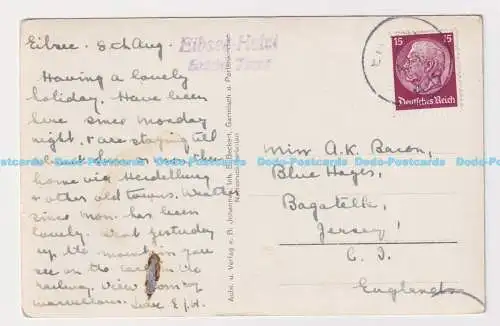 Eibsee. 8th Aug.
Having a lovely
holiday. Have been
here since Monday
night, & are staying till
about
home via Heidelburg
& other old towns. Weather
since Mon. has been
lovely. Went yesterday
up the mountain you
see on the
railway. View from top
marvellous. Love E
Eibsee-Hotel
Aufn. u. Verlag v. B. Johannes, Inh. B. Beckert, Garmisch u. Partenkirchen
15 15
Deutsches Reich
Miss A.K. Bacon,
Blue Hayes,
Bagatelle,
Jersey,
C. I.
England
Dodo-Postcards Dodo-Postcards Dodo-Postcards Dodo-Postcards Dodo-Postcards